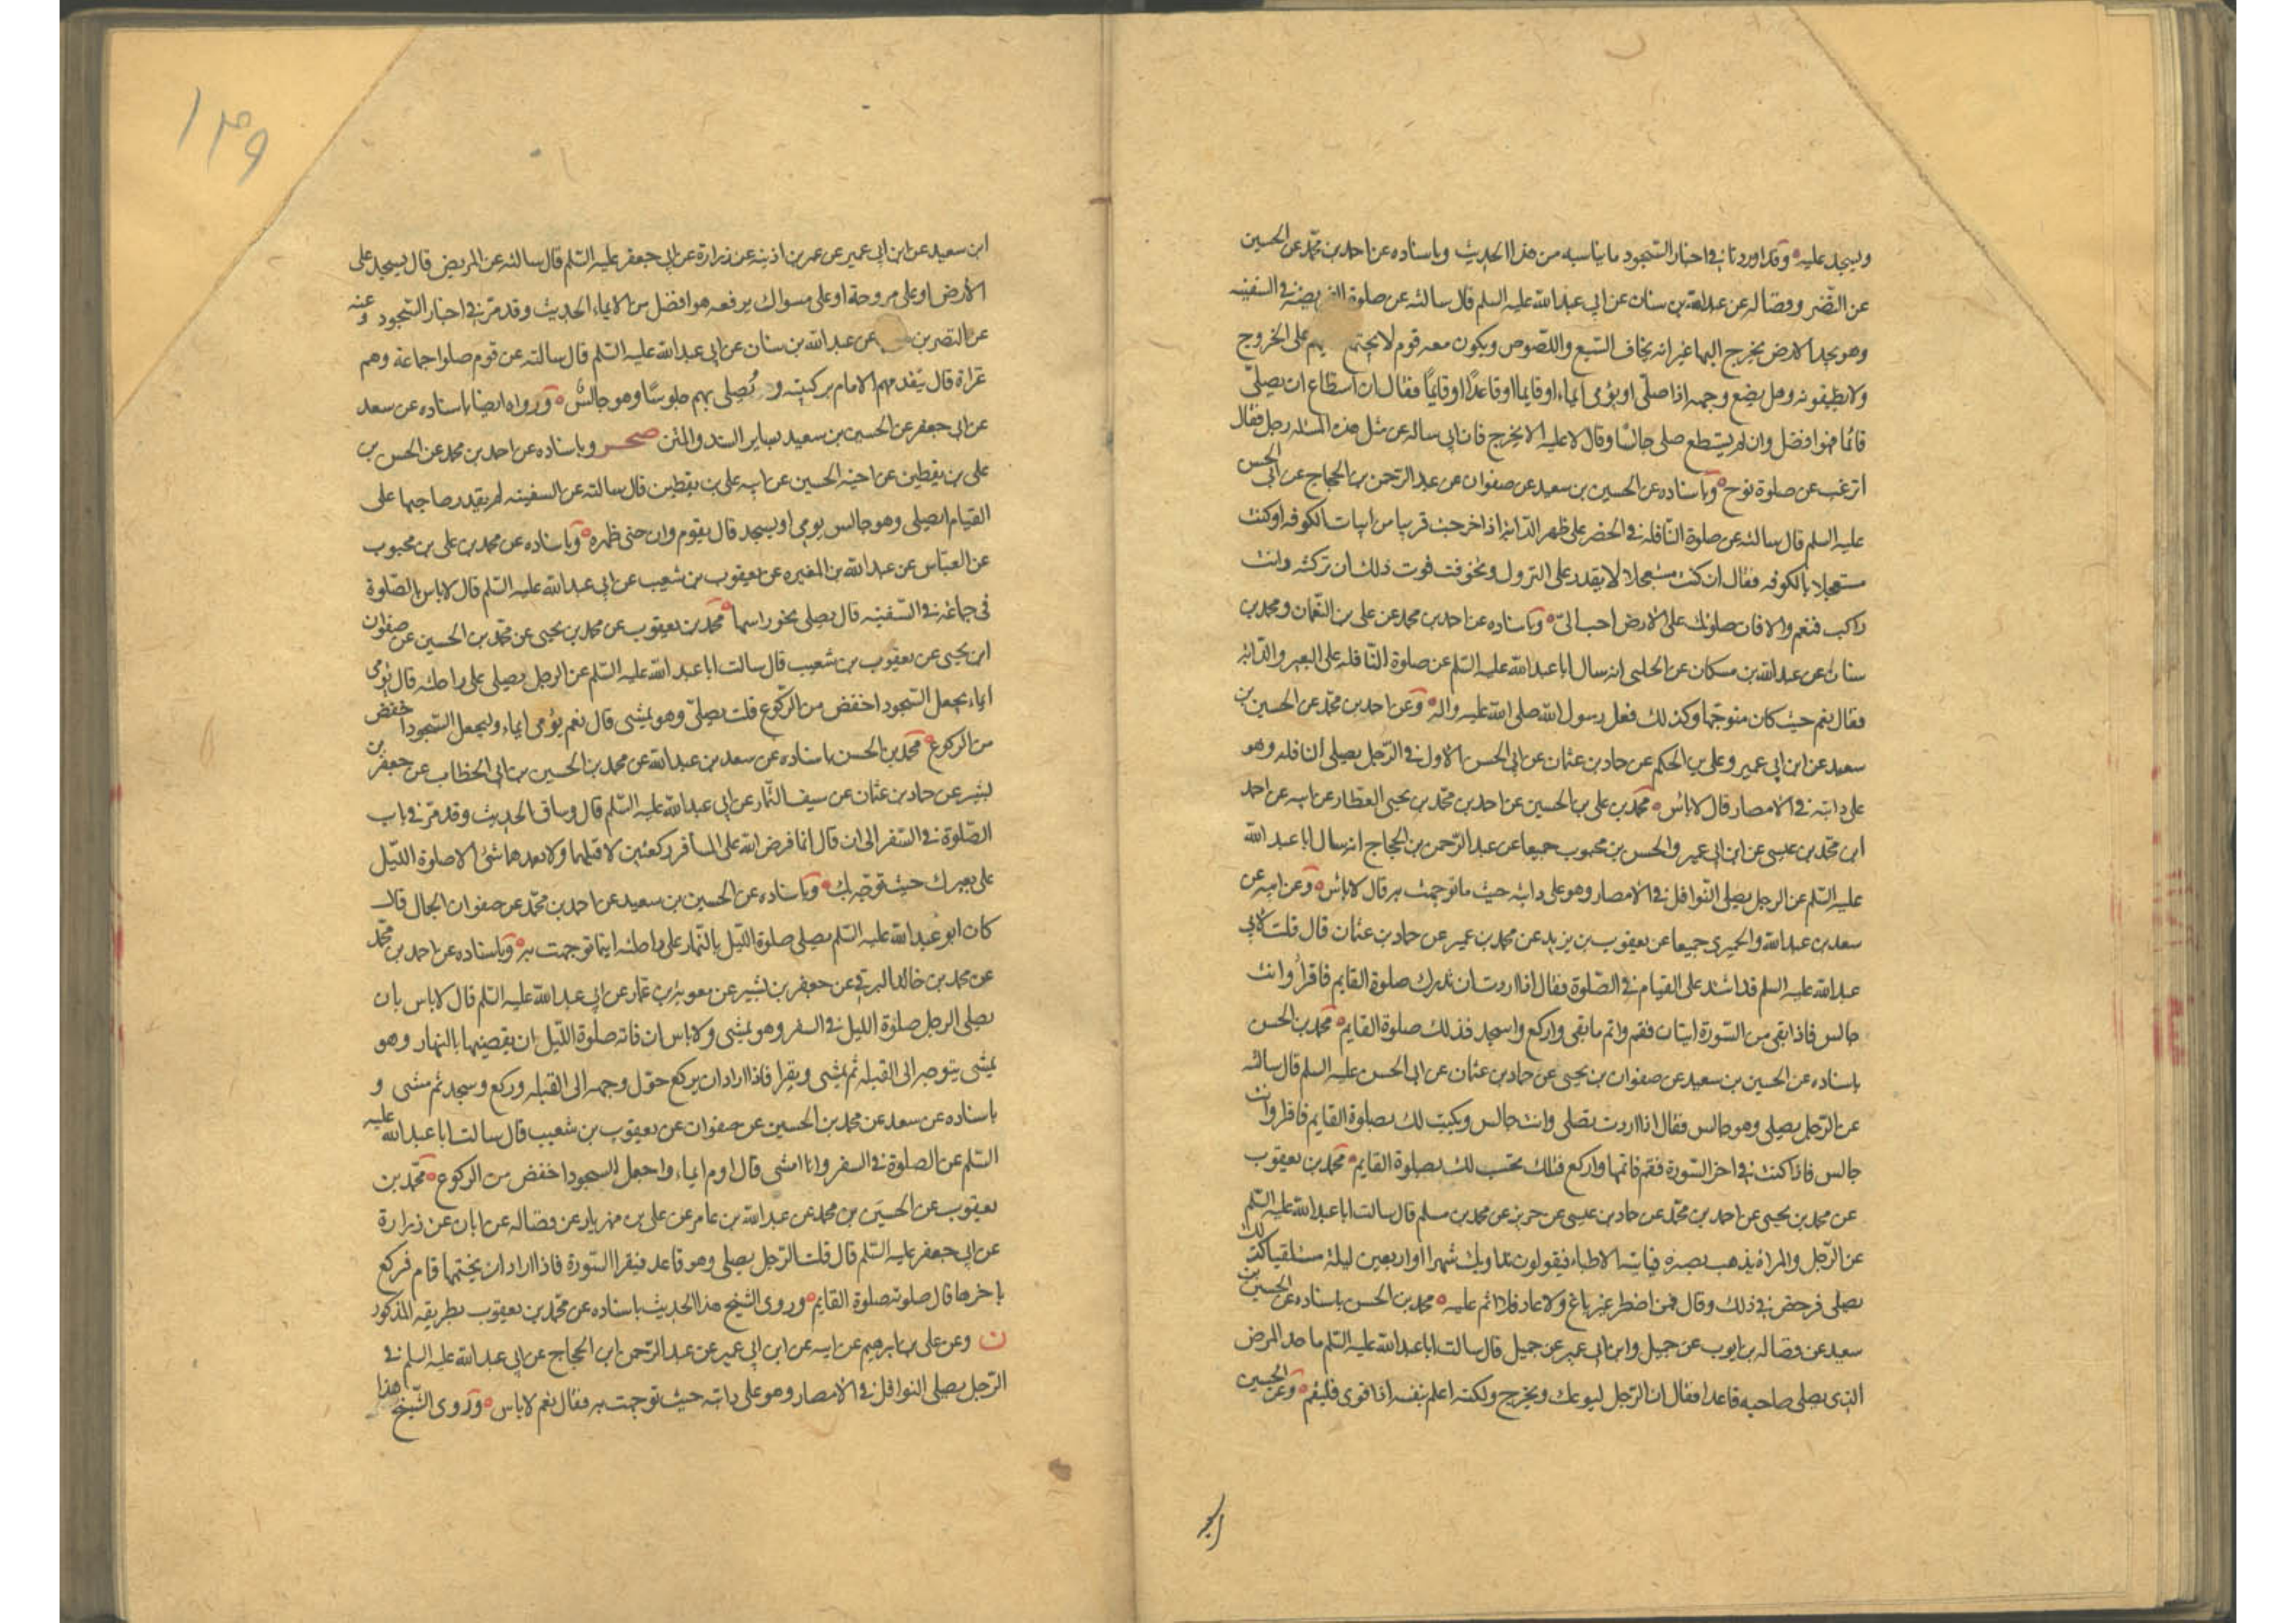 وليسجد عليه وقد اوردنا في اخبار السجود ما يناسبه من هذا الحديث وباسناده عن احمد بن محمد عن الحسين
عن النضر وفضاله عن عبدالله بن سنان عن ابي عبدالله عليه السلم قال سالته عن صلوة الفريضة في السفينه
وهو يجد الارض يخرج اليها غير انه يخاف السبع واللصوص ويكون معه قوم لا يجتمع على الخروج
ولا يطيقونه وهل يضع وجهه اذا صلى او يؤمى ايماء او قايما او قاعدا او قايما فقال ان استطاع ان يصلى
قائما فهو افضل وان لم يستطع صلى جالسا وقال لا عليه الا يخرج فان ابي ساله عن مثل هذه المسئله رجل فقال
اترغب عن صلوة نوح وباسناده عن الحسين بن سعيد عن صفوان عن عبد الرحمن بن الحجاج عن ابي الحسن
عليه السلم قال سالته عن صلوة النافلة في الحضر على ظهر الدابة اذا خرجت قريبا من ابيات الكوفه او كنت
مستعجلا بالكوفه فقال ان كنت مستعجلا لا يقدر على النزول وتخوفت فوت ذلك ان تركته وانت
راكب فنعم والا فان صلوتك على الارض احب الي وباسناده عن احمد بن محمد عن علي بن النعمان ومحمد بن
سنان عن عبدالله بن مسكان عن الحلبي انه سال ابا عبدالله عليه السلم عن صلوة النافله على البعير والدابة
فقال نعم حيث كان متوجها وكذلك فعل رسول الله صلى الله عليه واله وعن احمد بن محمد عن الحسين بن
سعيد عن ابن ابي عمير وعلي بن الحكم عن حماد بن عثمان عن ابي الحسن الاول في الرجل يصلى النافله وهو
على دابته في الامصار قال لا باس محمد بن علي بن الحسين عن احمد بن محمد بن يحيى العطار عن ابيه عن احمد
ابن محمد بن عيسى عن ابن ابي عمير والحسن بن محبوب جميعا عن عبد الرحمن بن الحجاج انه سال ابا عبد الله
عليه السلم عن الرجل يصلى النوافل في الامصار وهو على دابته حيث ما توجهت به قال لا باس وعن ابيه عن
سعد بن عبدالله والحميري جميعا عن يعقوب بن يزيد عن محمد بن عمير عن حماد بن عثمان قال قلت لابي
عبدالله عليه السلم قد اشتد علي القيام في الصلوة فقال اذا اردت ان تدرك صلوة القايم فاقرا وانت
جالس فاذا بقى من السورة ايتان فقم واتم ما بقى واركع واسجد فذلك صلوة القايم محمد بن الحسن
باسناده عن الحسين بن سعيد عن صفوان بن يحيى عن حماد بن عثمان عن ابي الحسن عليه السلم قال سالته
عن الرجل يصلى وهو جالس فقال اذا اردت تصلى وانت جالس ويكتب لك بصلوة القايم فاقرا وانت
جالس فاذا كنت في اخر السورة فقم فاتمها واركع فتلك تحتسب لك بصلوة القايم محمد بن يعقوب
عن محمد بن يحيى عن احمد بن محمد عن حماد بن عيسى عن حريز عن محمد بن مسلم قال سالت ابا عبدالله عليه السلم
عن الرجل والمراة يذهب بصره فياتيه الاطباء فيقولون نداويك شهرا او اربعين ليلة مستلقيا كذلك
يصلى فرخص في ذلك وقال فمن اضطر غير باغ ولا عاد فلا اثم عليه محمد بن الحسن باسناده عن الحسين بن
سعيد عن فضاله بن ايوب عن جميل وابن ابي عمير عن جميل قال سالت ابا عبدالله عليه السلم ما حد المرض
الذي يصلى صاحبه قاعدا فقال ان الرجل ليوعك ويخرج ولكنه اعلم بنفسه اذا قوى فليقم وعن الحسين
١٣٩
ابن سعيد عن ابن ابي عمير عن عمر بن اذينه عن زرارة عن ابي جعفر عليه السلم قال سالته عن المريض قال يسجد على
الارض او على مروحة او على مسواك يرفعه هو افضل من الايماء الحديث وقد مر في اخبار السجود وعنه
عن النضر بن عن عبدالله بن سنان عن ابي عبدالله عليه السلم قال سالته عن قوم صلوا جماعة وهم
عراة قال يتقدمهم الامام بركبتيه و يصلى بهم جلوسا وهو جالس ورواه ايضا باسناده عن سعد
عن ابي جعفر عن الحسين بن سعيد بساير السند والمتن صحر وباسناده عن احمد بن محمد عن الحسن بن
علي بن يقطين عن اخيه الحسين عن ابيه علي بن يقطين قال سالته عن السفينه لم يقدر صاحبها على
القيام ايصلى وهو جالس يومى او يسجد قال يقوم وان حنى ظهره وباسناده عن محمد بن علي بن محبوب
عن العباس عن عبدالله بن المغيره عن يعقوب بن شعيب عن ابي عبدالله عليه السلم قال لا باس بالصلوة
في جماعة في السفينه قال يصلى نحو راسها محمد بن يعقوب عن محمد بن يحيى عن محمد بن الحسين عن صفوان
ابن يحيى عن يعقوب بن شعيب قال سالت ابا عبد الله عليه السلم عن الرجل يصلى على راحلته قال يومى
ايماء يجعل السجود اخفض من الركوع قلت يصلى وهو يمشى قال نعم يؤمى ايماء وليجعل السجود اخفض
من الركوع محمد بن الحسن باسناده عن سعد بن عبدالله عن محمد بن الحسين بن ابي الخطاب عن جعفر بن
بشير عن حماد بن عثمان عن سيف التمار عن ابي عبدالله عليه السلم قال وساق الحديث وقد مر في باب
الصلوة في السفر الى ان قال انما فرض الله على المسافر ركعتين لا قبلهما ولا بعدهما شئ الا صلوة الليل
على بعيرك حيث توجه بك وباسناده عن الحسين بن سعيد عن احمد بن محمد عن صفوان الجمال قال
كان ابو عبدالله عليه السلم يصلى صلوة الليل بالنهار على راحلته اينما توجهت به وباسناده عن احمد بن محمد
عن محمد بن خالد البرقي عن جعفر بن بشير عن معوية بن عمار عن ابي عبدالله عليه السلم قال لا باس بان
يصلى الرجل صلوة الليل في السفر وهو يمشى ولا باس ان فاته صلوة الليل ان يقضيها بالنهار وهو
يمشى يتوجه الى القبله ثم يمشى ويقرا فاذا اراد ان يركع حول وجهه الى القبله وركع وسجد ثم مشى و
باسناده عن سعد عن محمد بن الحسين عن صفوان عن يعقوب بن شعيب قال سالت ابا عبدالله عليه
السلم عن الصلوة في السفر وانا امشى قال اوم ايماء واجعل السجود اخفض من الركوع محمد بن
يعقوب عن الحسين بن محمد عن عبدالله بن عامر عن علي بن مهزيار عن فضاله عن ابان عن زرارة
عن ابي جعفر عليه السلم قال قلت الرجل يصلى وهو قاعد فيقرا السورة فاذا اراد ان يختمها قام فركع
باخرها قال صلوته صلوة القايم وروى الشيخ هذا الحديث باسناده عن محمد بن يعقوب بطريقه المذكور
ن وعن علي بن ابرهيم عن ابيه عن ابن ابي عمير عن عبد الرحمن ابن الحجاج عن ابي عبدالله عليه السلم في
الرجل يصلى النوافل في الامصار وهو على دابته حيث توجهت به فقال نعم لا باس وروى الشيخ هذا